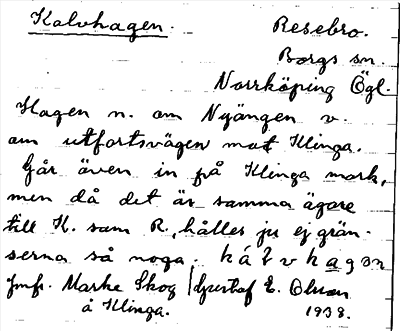 Kalvhagen. Resebro.
Borgs sn.
Norrköping Ögl.
Hagen n. om Nyängen v.
om utfartsvägen mot Klinga.
Går även in på Klinga mark,
men då det är samma ägare
till K. som R., hålles ju ej grän-
serna så noga.
Jmfr. Marke Skog / Gustaf E. Olson
å Klinga. 1938.